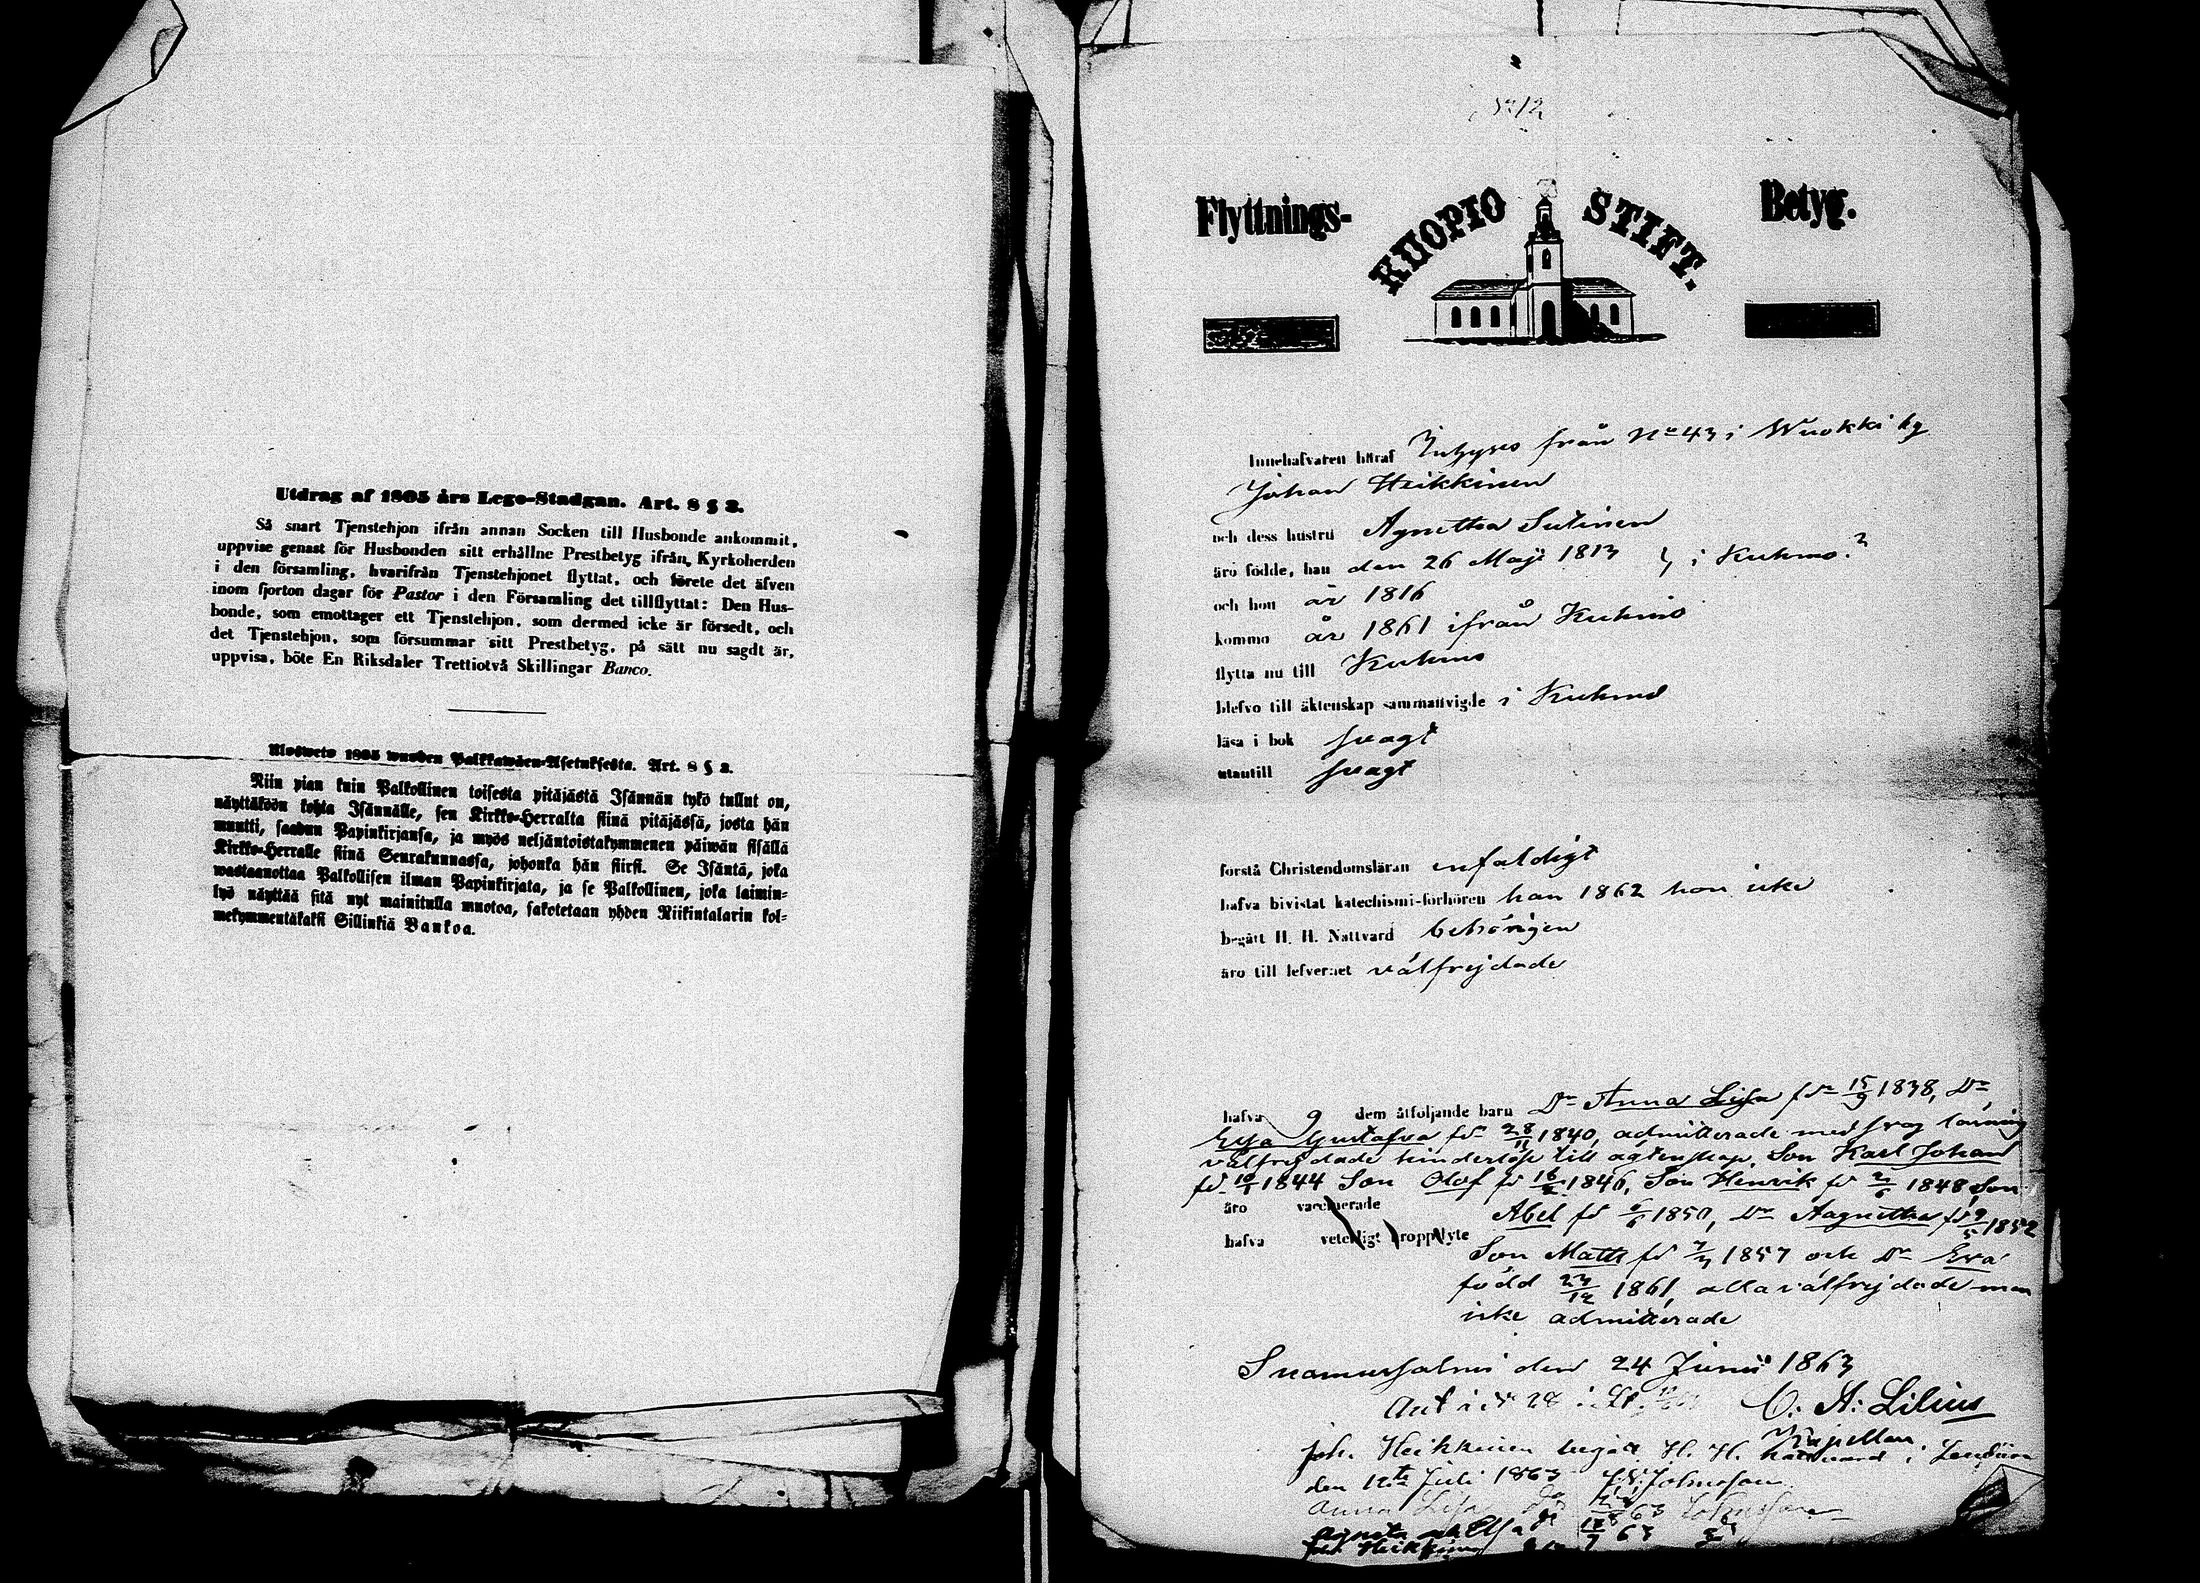 Utdrag af 1805 års Lego-Stadgan. Art. 8 § 2.
Så snart Tjenstehjon ifrån annan Socken till Husbonde ankommit,
uppvise genast för Husbonden sitt erhållne Prestbetyg ifrån Kyrkoherden
i den församling, hvarifrån Tjenstehjonet flyttat, och förete det äfven
inom fjorton dagar för Pastor i den Församling det tillflyttat: Den Hus-
bonde, som emottager ett Tjenstehjon, som dermed icke är försedt, och
det Tjenstehjon, som försummar sitt Prestbetyg, på sätt nu sagdt är,
uppvisa, böte En Riksdaler Trettiotvå Skillingar Banco.
Ulosweto 1805 wuoden Palkkawäen-Asetuksesta. Art. 8 § 2.
Niin pian kuin Palkollinen toisesta pitäjästä Isännän tykö tullut on,
näyttäköön kohta Isännälle, sen Kirkko-Herralta siinä pitäjässä, josta hän
muutti, saadun Papinkirjansa, ja myös neljäntoistakymmenen päiwän sisällä
Kirkko-Herralle siinä Seurakunnassa, johonka hän siirsi. Se Isäntä, joka
wastaanottaa Palkollisen ilman Papinkirjata, ja se Palkollinen, joka laimin-
lyö näyttää sitä nyt mainitulla muotoa, sakotetaan yhden Riikintalarin kol-
mekymmentäkaksi Sillinkiä Bankoa.
Flyttnings- KUOPIO STIFT. Betyg.
Innehafvaren häraf Inhyses från No 43 i Wuokki by
Johan Heikkinen
och dess hustru Agnetha Sutinen
äro födde, han den 26 Maji 1813 } i Kuhmo?
och hon år 1816
komma år 1861 ifrån Kuhmo
flytta nu till Kuhmo
blefvo till äktenskap sammanvigde i Kuhmo
läsa i bok svagt
utantill svagt
förstå Christendomsläran enfaldigt
hafva bivistat katechismi-förhören han 1862 hon icke
begått H. H. Nattvard behörigen
äro till lefvernet välfrejdade
hafva 9 dem åtföljande barn Dr Anna Lisa fdr 15/9 1838, Dr
Elsa Gustafva fdr 28/11 1840, admitterade med svag läsning
välfrejdade hinderlöse till ägtenskap, Son Karl Johan
fd 10/1 1844 Son Olof fd 16/2 1846, Son Henrik fd 2/6 1848, Son
äro vaccinerade Abel fd 6/6 1850, Dr Aagnetha fd 9/5 1852
hafva veterligt kropplyte
Son Matts fd 7/3 1857 och Dr Eva
född 23/12 1861, alla välfrejdade men
icke admitterade
Suomussalmi den 24 Junii 1863
O. A: Lilius
Kapellan.
Joh. Heikkinen begått H. H. Nattvard i
den 12te Juli 1863 Johnsson
Anna Lisa 63 Johnsson
Agneta och Elsa 12/7 63
Joh. Heikkinen